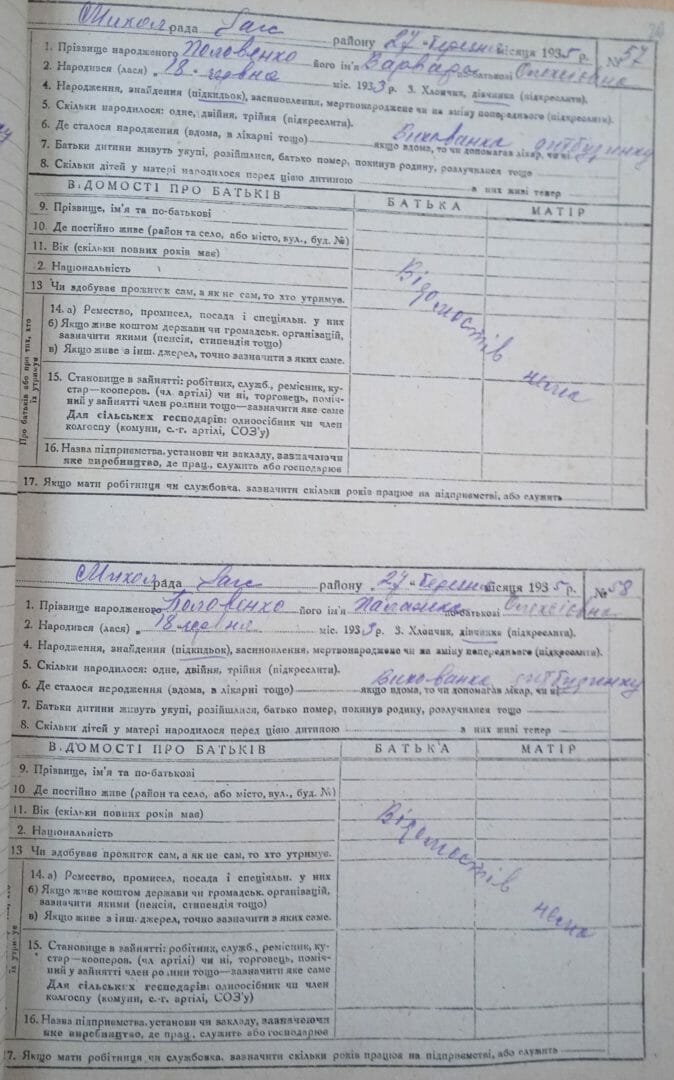 Микол рада Загс району 27 " березня місяця 1935 р. № 57
1. Прізвище народженого Половенко його ім'я Варвара по-батькові Олексіївна
2. Народився (лася) „ 18 " червня міс. 1933 р. 3. Хлопчик, дівчинка (підкреслити).
4. Народження, знайдення (підкидьок), засиновлення, мертвонароджене чи на зміну попереднього (підкреслити).
5. Скільки народилося: одне, двійня, трійня (підкреслити).
6. Де сталося народження (вдома, в лікарні тощо) Вихованка дитбудинку якщо вдома, то чи допомагав лікар, чи ні
7. Батьки дитини живуть укупі, розійшлися, батько помер, покинув родину, розлучилися тощо
8. Скільки дітей у матері народилося перед цією дитиною а них живі тепер
ВІДОМОСТІ ПРО БАТЬКІВ БАТЬКА МАТІР
9. Прізвище, ім'я та по-батькові
10. Де постійно живе (район та село, або місто, вул., буд. №)
11. Вік (скільки повних років має)
2. Національність
13 Чи здобував прожиток сам, а як не сам, то хто утримує.
Про батьків або про тих, хто їх утримує
14. а) Ремество, промисел, посада і спеціяльн. у них
б) Якщо живе коштом держави чи громадськ. організацій,
зазначити якими (пенсія, стипендія тощо)
в) Якщо живе з інш. джерел, точно зазначити з яких саме.
Відомостів нема
15. Становище в зайнятті: робітник, служб., ремісник, ку-
стар—кооперов. (чл артілі) чи ні, торговець, поміч-
ний у зайнятті член родини тощо—зазначити яке саме
Для сільських господарів: одноосібник чи член
колгоспу (комуни, с.-г. артілі, СОЗ'у)
16. Назва підприємства, установи чи закладу, зазначаючи
яке виробництво, де прац., служить або господарює
17. Якщо мати робітниця чи службовка, зазначити скільки років працює на підприємстві, або служить
Микол рада Загс району „ 27 " березня місяця 1935 р. № 58
1. Прізвище народженого Половенко його ім'я Палажка по-батькові Олексіївна
2. Народився (лася) „ 18 червня міс. 1933 р. 3. Хлопчик, дівчинка (підкреслити).
4. Народження, знайдення (підкидьок), засиновлення, мертвонароджене чи на зміну попереднього (підкреслити).
5. Скільки народилося: одне, двійня, трійня (підкреслити).
6. Де сталося народження (вдома, в лікарні тощо) Вихованка дитбудинку якщо вдома, то чи допомагав лікар, чи ні
7. Батьки дитини живуть укупі, розійшлися, батько помер, покинув родину, розлучилися тощо
8. Скільки дітей у матері народилося перед цією дитиною а них живі тепер
ВІДОМОСТІ ПРО БАТЬКІВ БАТЬКА МАТІР
9. Прізвище, ім'я та по-батькові
10 Де постійно живе (район та село, або місто, вул., буд. №)
11. Вік (скільки повних років має)
2. Національність
13 Чи здобував прожиток сам, а як не сам, то хто утримує.
14. а) Ремество, промисел, посада і спеціяльн. у них
б) Якщо живе коштом держави чи громадськ. організацій,
зазначити якими (пенсія, стипендія тощо)
в) Якщо живе з інш. джерел, точно зазначити з яких саме.
Відомостів нема
15. Становище в зайнятті: робітник, служб., ремісник, ку-
стар—кооперов. (чл артілі) чи ні, торговець, поміч-
ний у зайнятті член родини тощо—зазначити яке саме
Для сільських господарів: одноосібник чи член
колгоспу (комуни, с.-г. артілі, СОЗ'у)
16. Назва підприємства, установи чи закладу, зазначаючи
яке виробництво, де прац., служить або господарює
7. Якщо мати робітниця чи службовка, зазначити скільки років працює на підприємстві, або служить